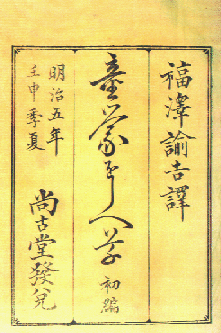 福澤諭吉譯
童蒙をしへ草 初編
明治五年
壬申季夏
尚古堂發兌